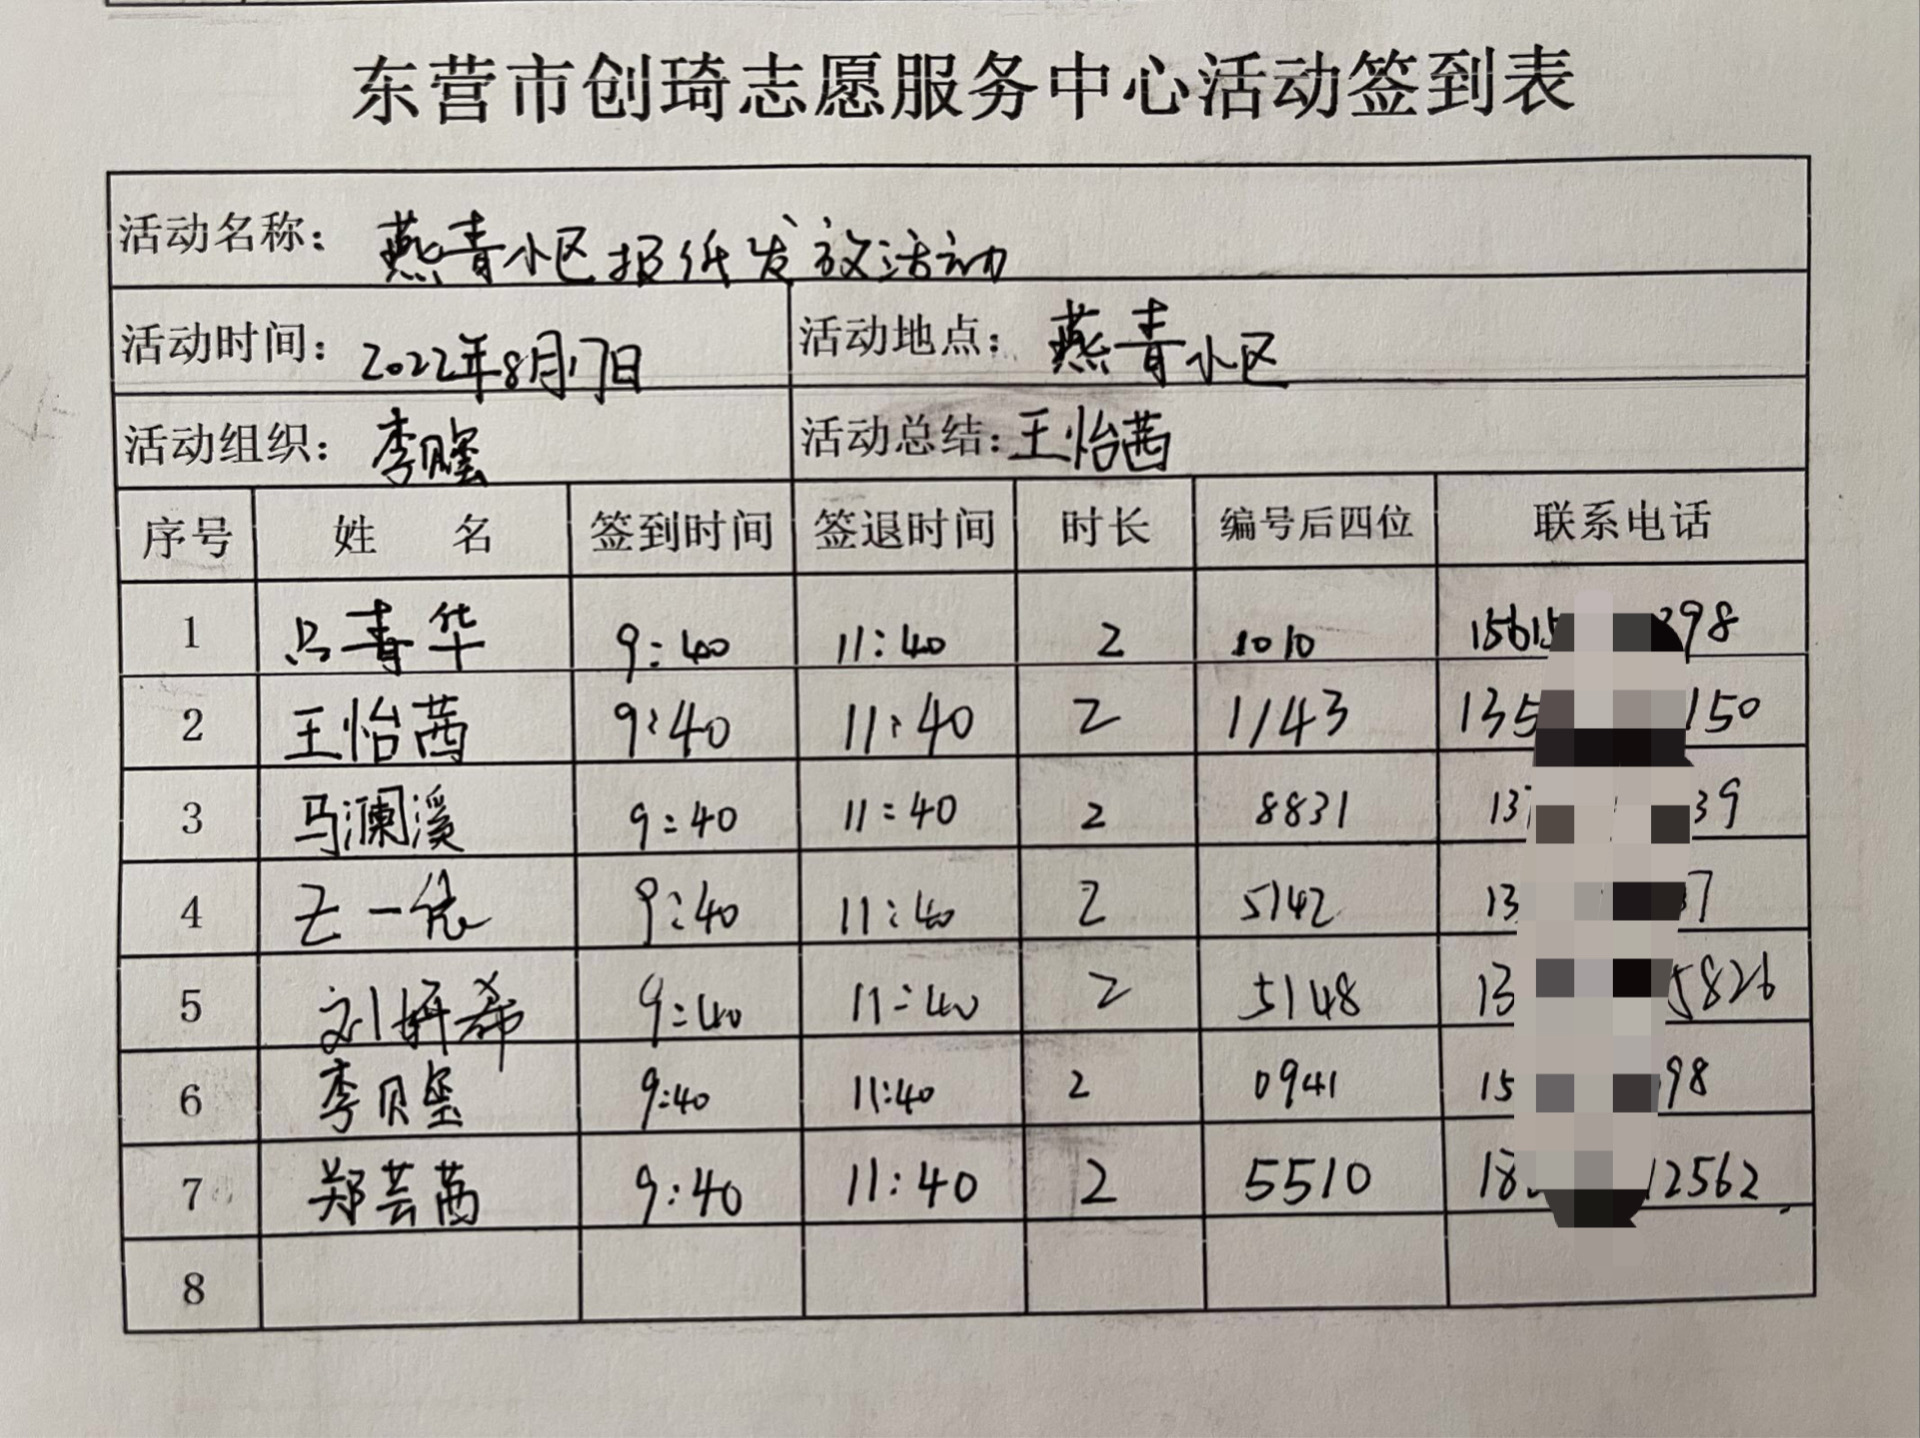 东营市创琦志愿服务中心活动签到表
活动名称： 燕青小区报纸发放活动
活动时间： 2022年8月17日 活动地点： 燕青小区
活动组织： 李贝 活动总结： 王怡茜
序号 姓 名 签到时间 签退时间 时长 编号后四位 联系电话
1 吕青华 9:40 11:40 2 1010 15615 398
2 王怡茜 9:40 11:40 2 1143 135 150
3 马澜溪 9:40 11:40 2 8831 13 39
4 一依 9:40 11:40 2 5142 13 7
5 刘妍希 9:40 11:40 2 5148 13 5826
6 李贝 9:40 11:40 2 0941 15 98
7 郑芸茜 9:40 11:40 2 5510 18 12562
8